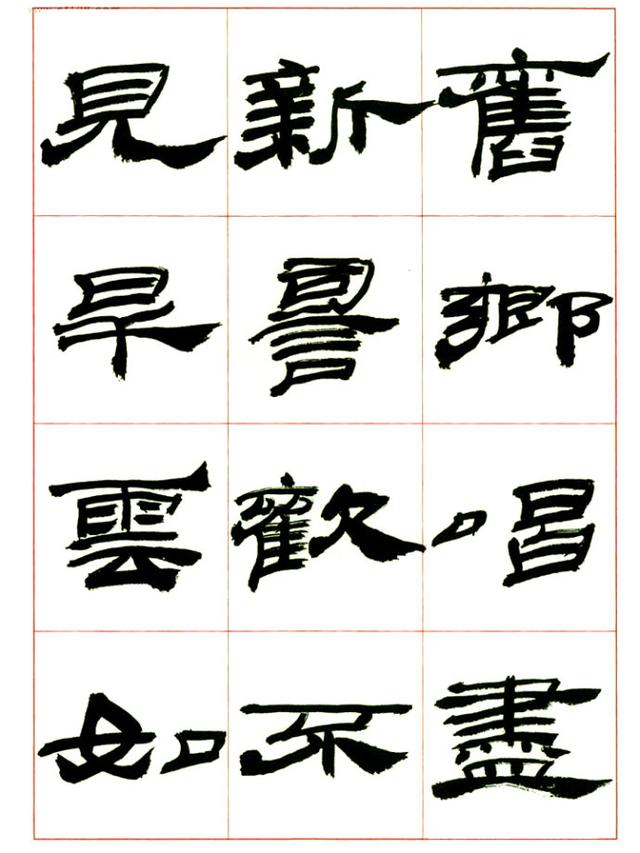 舊鄉唱盡
新歡不
見早雲如